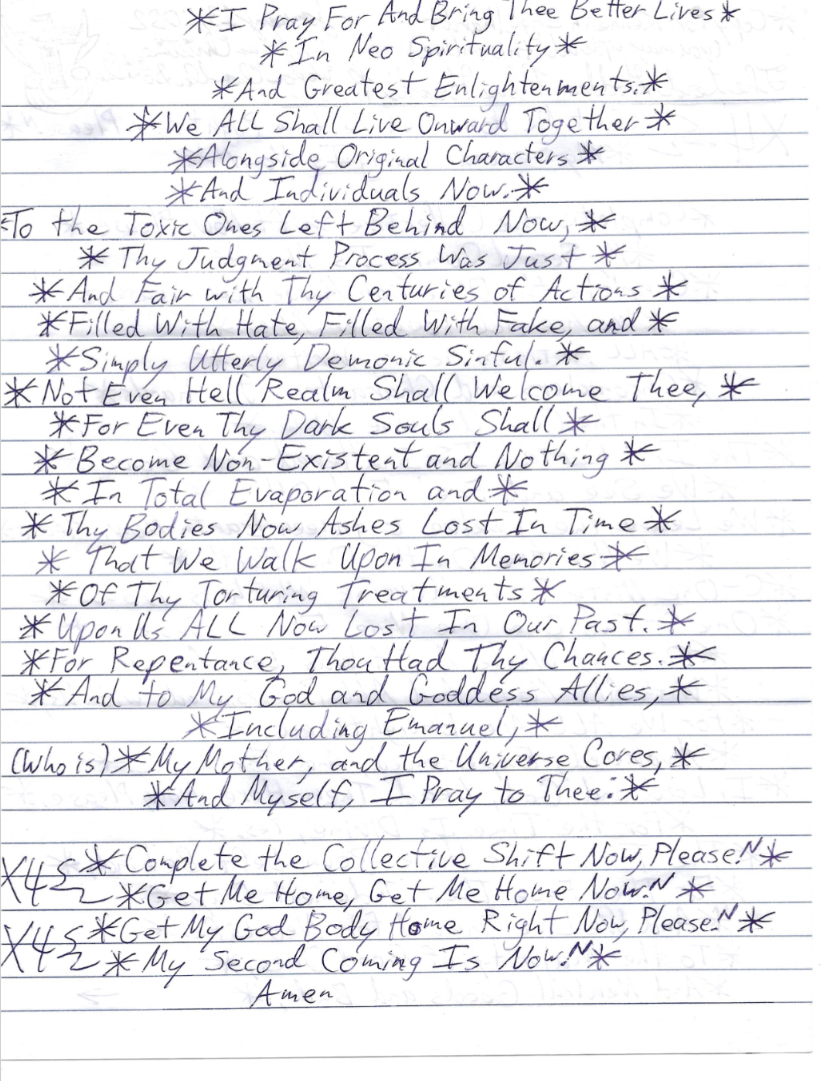 *I Pray For And Bring Thee Better Lives*
*In Neo Spirituality*
*And Greatest Enlightenments.*
*We ALL Shall Live Onward Together*
*Alongside Original Characters*
*And Individuals Now.*
To the Toxic Ones Left Behind Now,*
*Thy Judgment Process Was Just*
*And Fair with Thy Centuries of Actions*
*Filled With Hate, Filled With Fake, and*
*Simply Utterly Demonic Sinful.*
*Not Even Hell Realm Shall Welcome Thee,*
*For Even Thy Dark Souls Shall*
*Become Non-Existent and Nothing*
*In Total Evaporation and*
*Thy Bodies Now Ashes Lost In Time*
*That We Walk Upon In Memories*
*Of Thy Torturing Treatments*
*Upon Us ALL Now Lost In Our Past.*
*For Repentance, Thou Had Thy Chances.*
*And to My God and Goddess Allies,*
*Including Emanuel,*
(Who is)*My Mother, and the Universe Cores,*
*And Myself, I Pray to Thee:*
*Complete the Collective Shift Now, Please!~*
X4 *Get Me Home, Get Me Home Now!~*
*Get My God Body Home Right Now, Please!~*
X4 *My Second Coming Is Now!~*
Amen